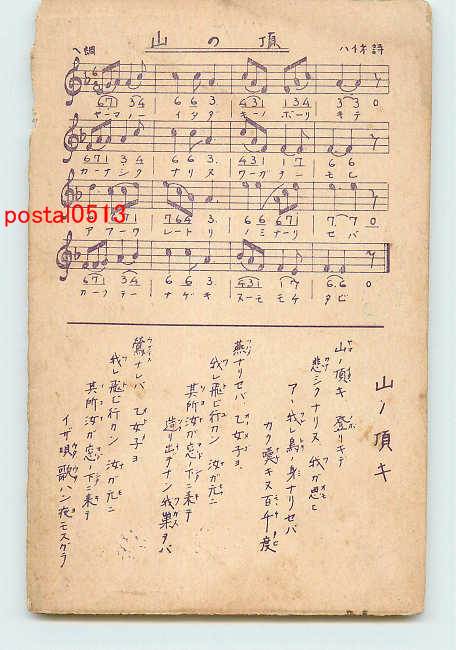 山の頂
ヘ調
ハイネ詩
671 34 | 6 6 3 | 431 134 | 3 3 0
ヤーマノー イタダ キーノボーリ キテ
671 3 4 | 6 6 3. | 431 17 | 6 6
カーナシク ナリヌ ワーガオー モヒ
671 | 7643. | 6 6 671 | 7 7 0
アアーワ レートリ ノミナーリ セバ
カークテー ナゲキ ヌーモモチ タビ
postal0513
山ノ頂キ
山ノ頂キ 登リキテ
悲シクナリヌ 我ガ思ヒ
アヽ我レ鳥ノ身ナリセバ
カク嘆キヌ百千度
燕ナリセバ 乙女子ヨ
我レ飛ビ行カン 汝ガ元ニ
其所汝ガ窓ノ下ニ来テ
造リ出デナン我巣ヲバ
鶯ナレバ 乙女子ヨ
我レ飛ビ行カン 汝ガ元ニ
其所汝ガ窓ノ下ニ来テ
イザ唄歌ハン夜モスガラ